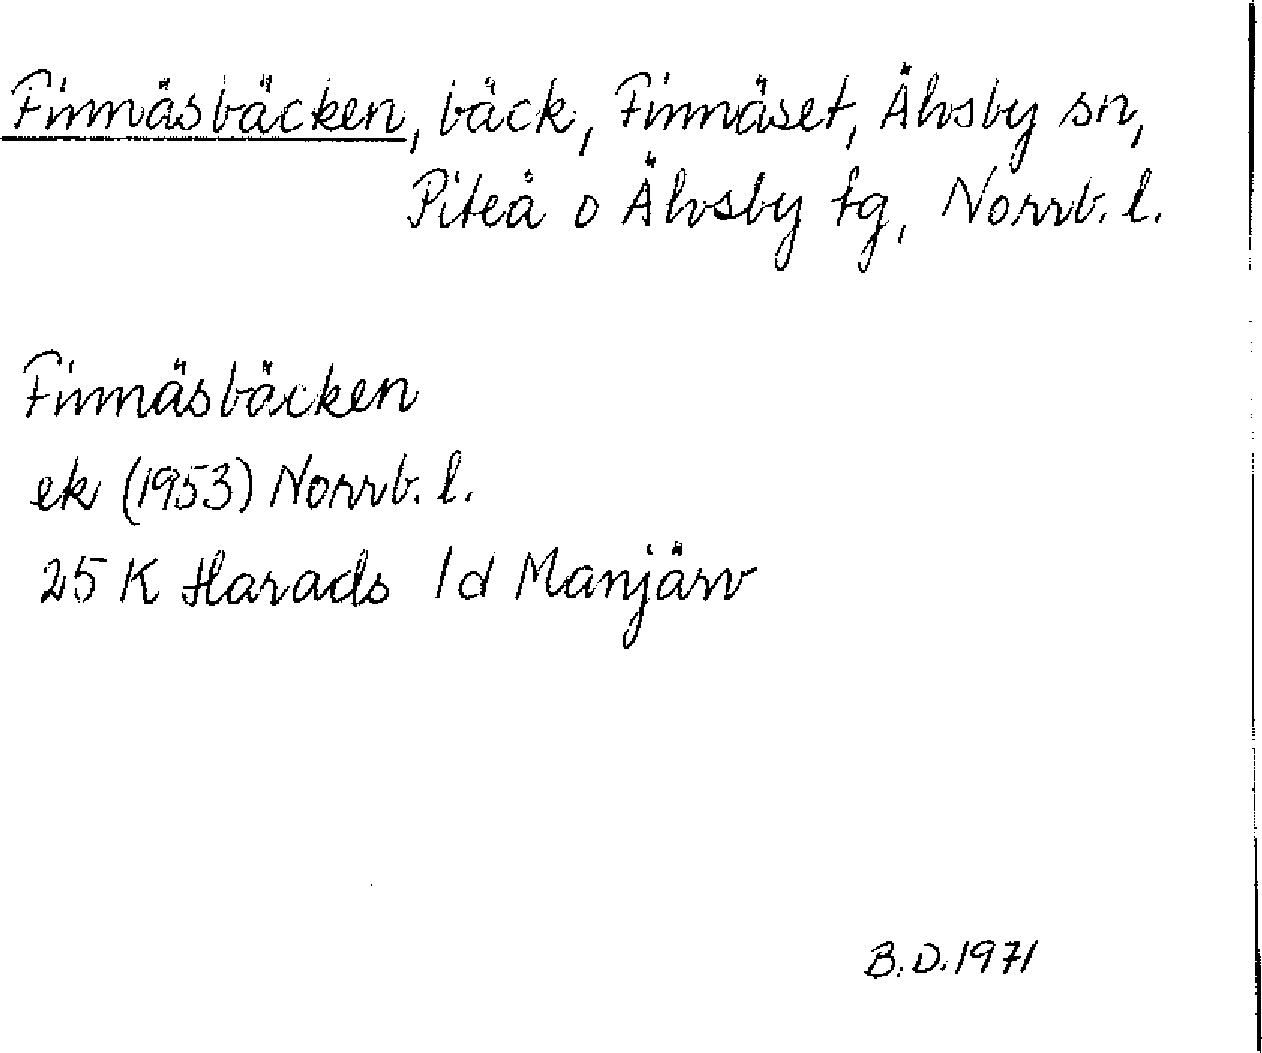 Finnäsbäcken, bäck, Finnäset, Älvsby sn,
Piteå o Älvsby tg, Norrb. l.
Finnäsbäcken
ek (1953) Norrb. l.
25 K Harads 1d Manjärv
B.D. 1971